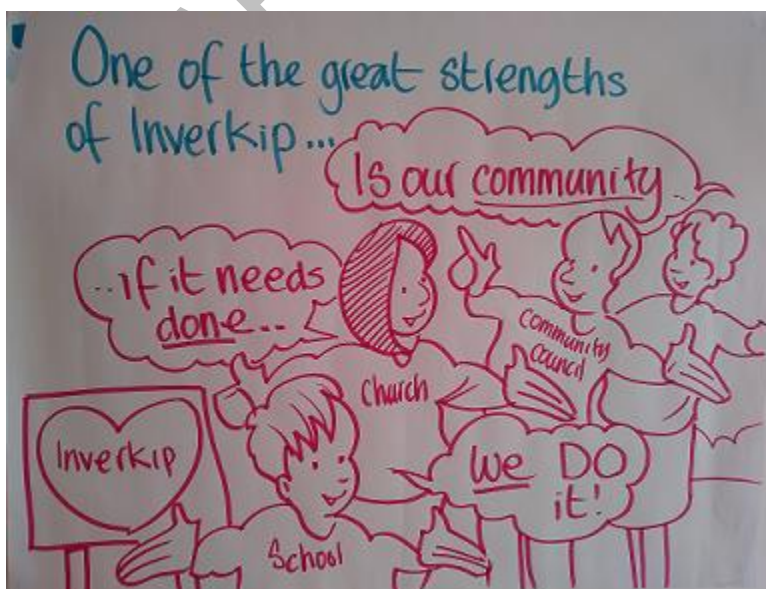 One of the great strengths
of Inverkip...
Is our community..
..if it needs
done..
Church
Community
Council
Inverkip
We DO
it!
School